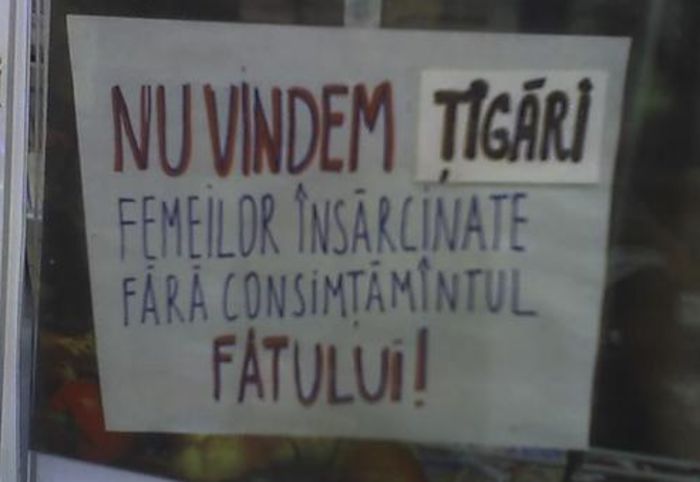 NU VINDEM ȚIGĂRI
FEMEILOR ÎNSĂRCINATE
FĂRĂ CONSIMȚĂMÎNTUL
FĂTULUI!